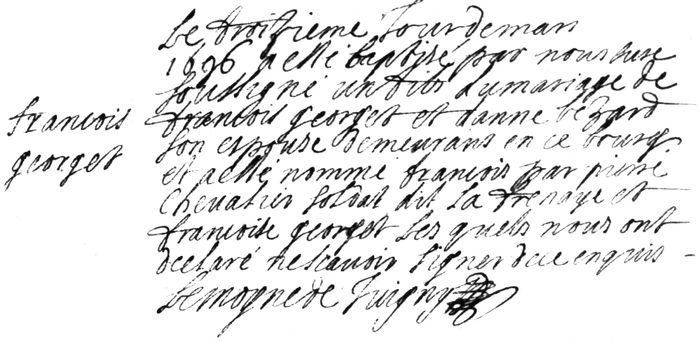 francois
georget
Le troisieme Jour de mars
1696 a esté baptisé par nous curé
soussigné un fils du mariage de
francois georget et danne bezard
son espouse demeurans en ce bourg
et a esté nommé francois par pierre
chevalier soldat dit la frenaye et
francoise georget Les quels nous ont
declaré ne scavoir signer de ce enquis -
Lemoyne de Juigny